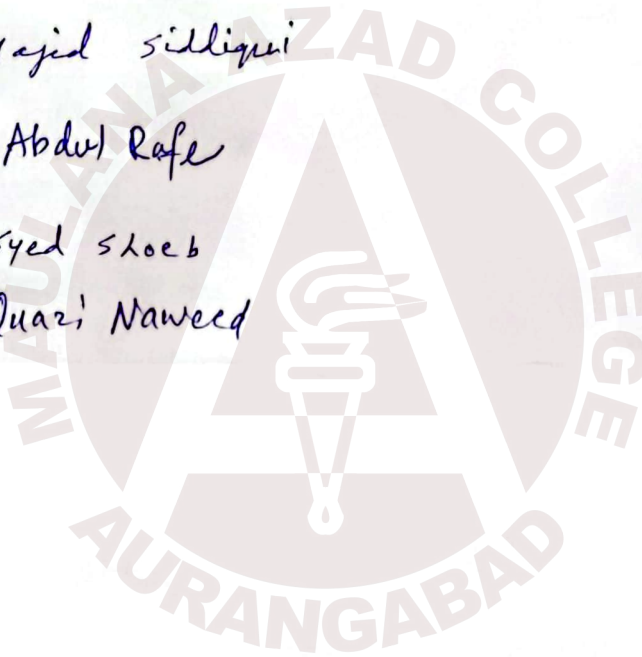 siddiqui
Abdul Rafe
Syed Shoeb
Quazi Naweed
MAULANA AZAD COLLEGE
AURANGABAD